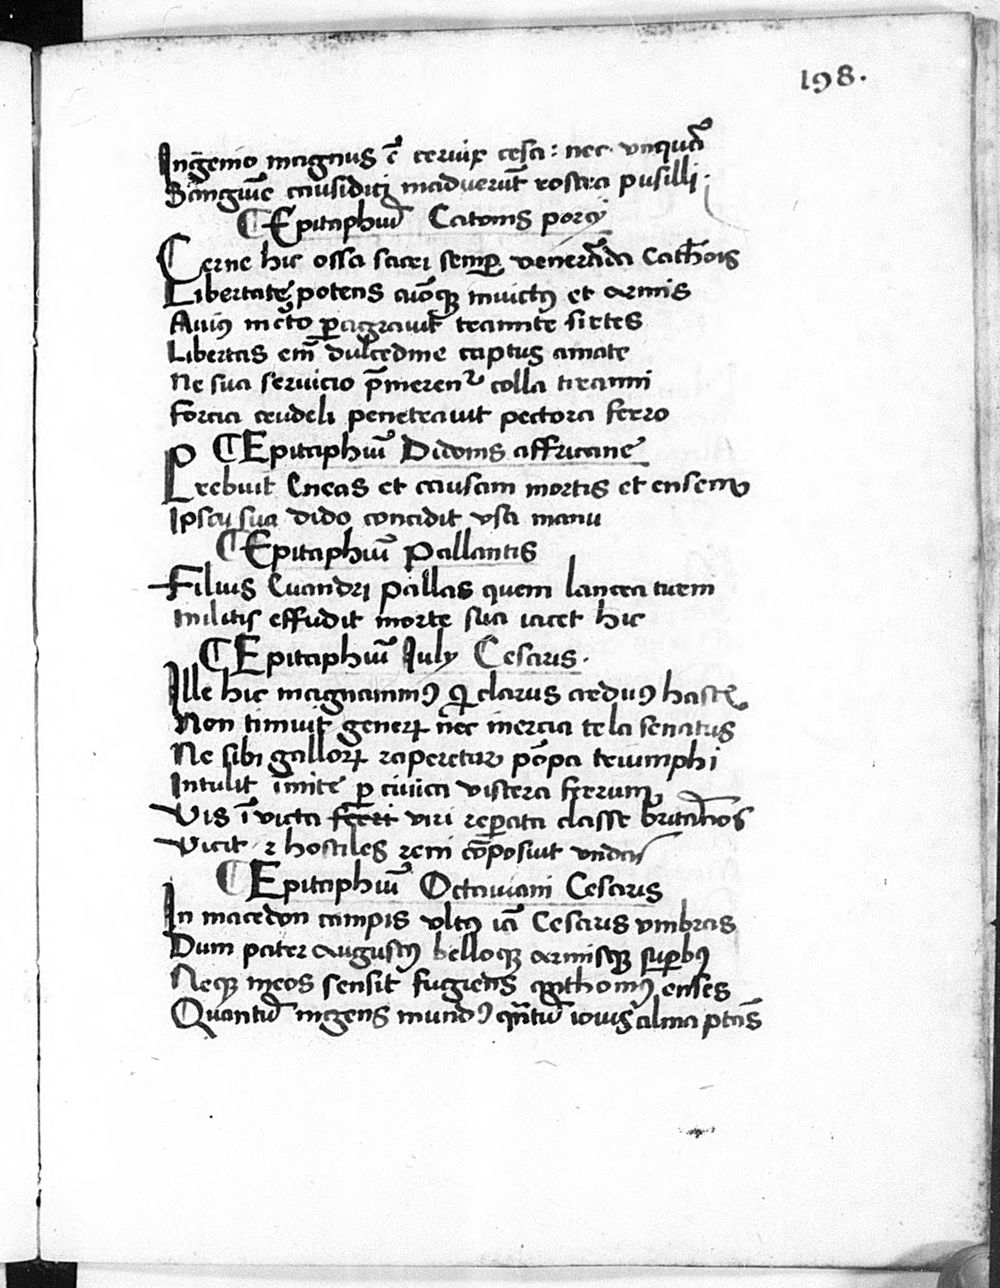 198.
Ingenio magnus ē cervix cesa: nec unquā
Sangui͞e causidici maduerūt rostra pusilli.
¶ Epitaphiū Catonis porcij
Cerne hic ossa sacri semp̱ venerāda Cathōis
Libertatē potens aiōq; invictꝰ et armis
libertas em̄ dulcedine captus amate
Ne sua servicio p̄merent᷑ colla tiranni
Forcia crudeli penetravit pectora ferro
¶ Epitaphiū Didonis affricane
P rebuit Eneas et causam mortis et ensem
Ipsa sua Dido concidit usa manu
¶ Epitaphiū Pallantis
Filius Evandri Pallas quem lancea turni
Militis effudit morte sua iacet hic
¶ Epitaphiū July Cesaris.
Ille hic magnanimꝰ clarus arduꝰ
Non timuit generꝝ nec inercia tela senatus
Ne sibi gallorꝝ raperetur pōpa triumphi
Intulit īmite p̱ civica viscera ferrum
Vis ī victa viri rep̱ata classe britānos
Vicit ⁊ hostiles reni cōposuit undas
¶ Epitaphiū Octaviani Cesaris
In macedon campis ultꝰ iā Cesaris umbras
Dum pater augustꝰ belloq; armisq; sup̱bꝰ
Neq; meos sensit fugiens enses
Quantū ingens mundꝰ qn̄tū iovis alma p̄tās